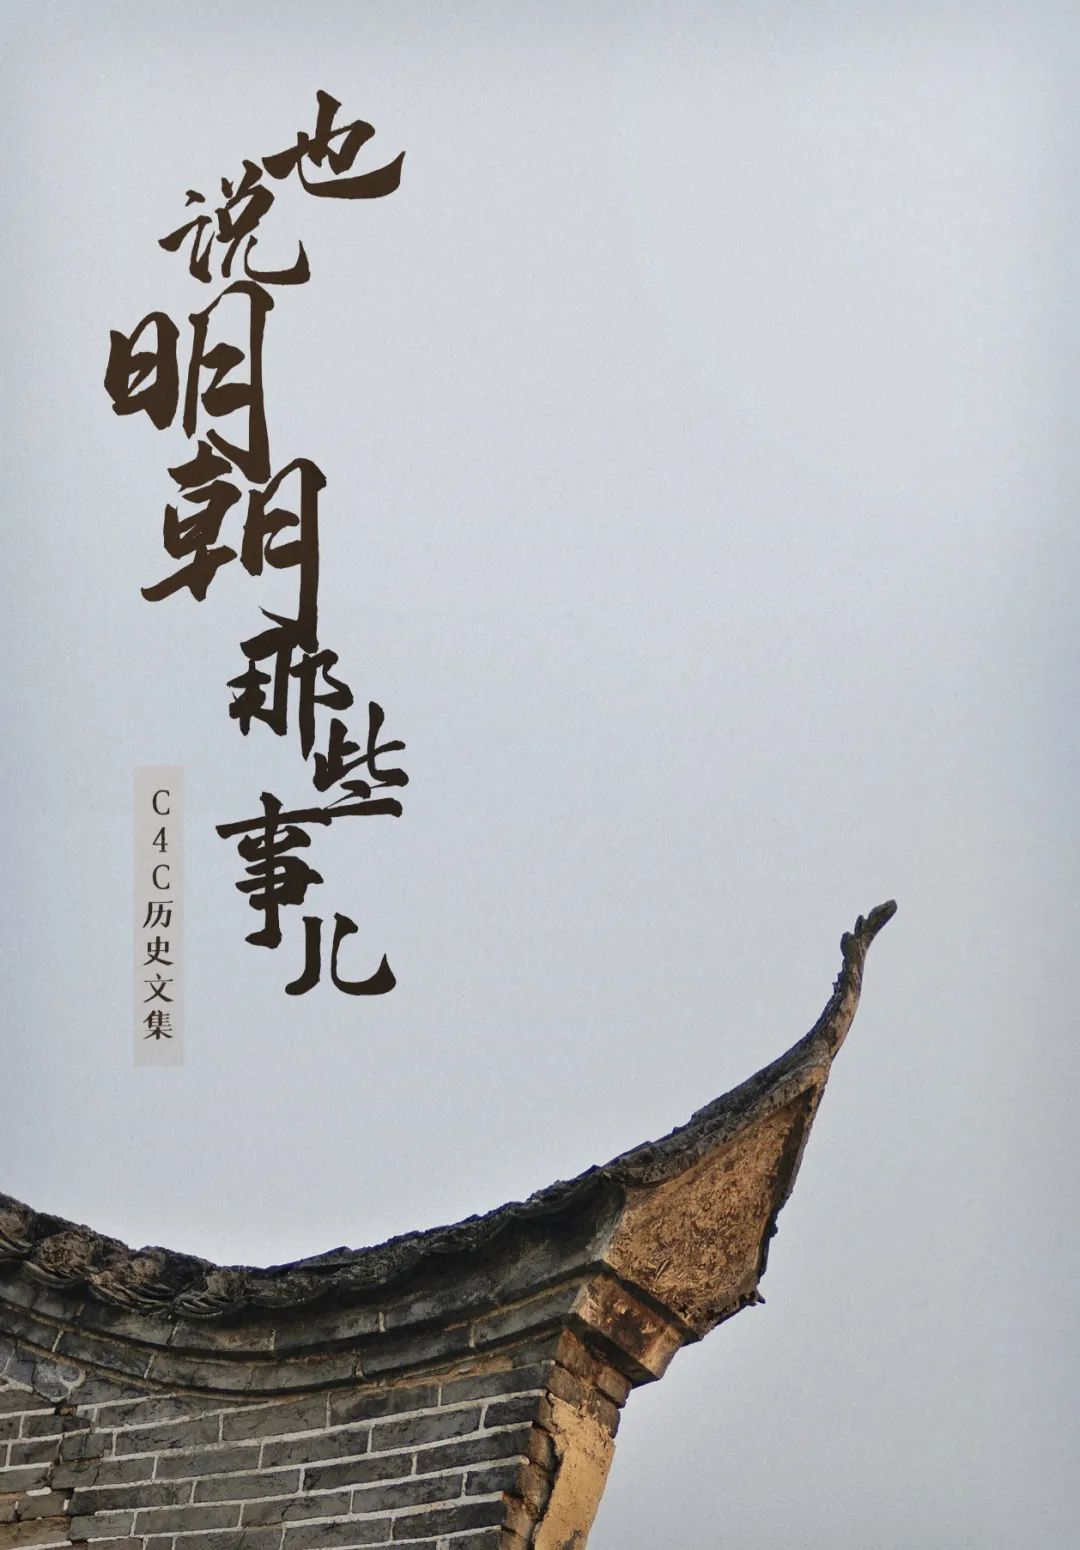 也说明朝那些事儿
C4C历史文集